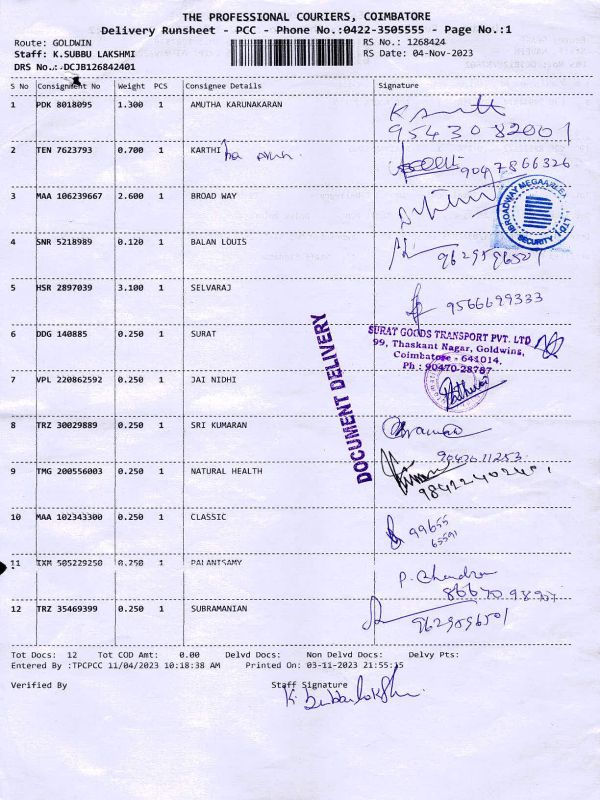 THE PROFESSIONAL COURIERS, COIMBATORE
Delivery Runsheet - PCC - Phone No.:0422-3505555 - Page No.:1
Route: GOLDWIN RS No.: 1268424
Staff: K.SUBBU LAKSHMI RS Date: 04-Nov-2023
DRS No.:-DCJB126842401
S No Consignment No Weight PCS Consignee Details Signature
1 PDK 8018095 1.300 1 AMUTHA KARUNAKARAN
9543082001
2 TEN 7623793 0.700 1 KARTHI
9047866326
3 MAA 106239667 2.600 1 BROAD WAY
SECURITY
4 SNR 5218989 0.120 1 BALAN LOUIS
9629596501
5 HSR 2897039 3.100 1 SELVARAJ
9566699333
DOCUMENT DELIVERY
6 DDG 140885 0.250 1 SURAT
SURAT GOODS TRANSPORT PVT. LTD
99, Thaskant Nagar, Goldwins,
Coimbatore - 641014.
Ph : 90470-28787
7 VPL 220862592 0.250 1 JAI NIDHI
8 TRZ 30029889 0.250 1 SRI KUMARAN
9 TMG 200556003 0.250 1 NATURAL HEALTH
10 MAA 102343300 0.250 1 CLASSIC
99655
65591
11 TXM 505229250 0.250 1 PALANISAMY
P. Chandra
12 TRZ 35469399 0.250 1 SUBRAMANIAN
9629596501
Tot Docs: 12 Tot COD Amt: 0.00 Delvd Docs: Non Delvd Docs: Delvy Pts:
Entered By :TPCPCC 11/04/2023 10:18:38 AM Printed On: 03-11-2023 21:55:15
Verified By Staff Signature
K. Subbulakshmi